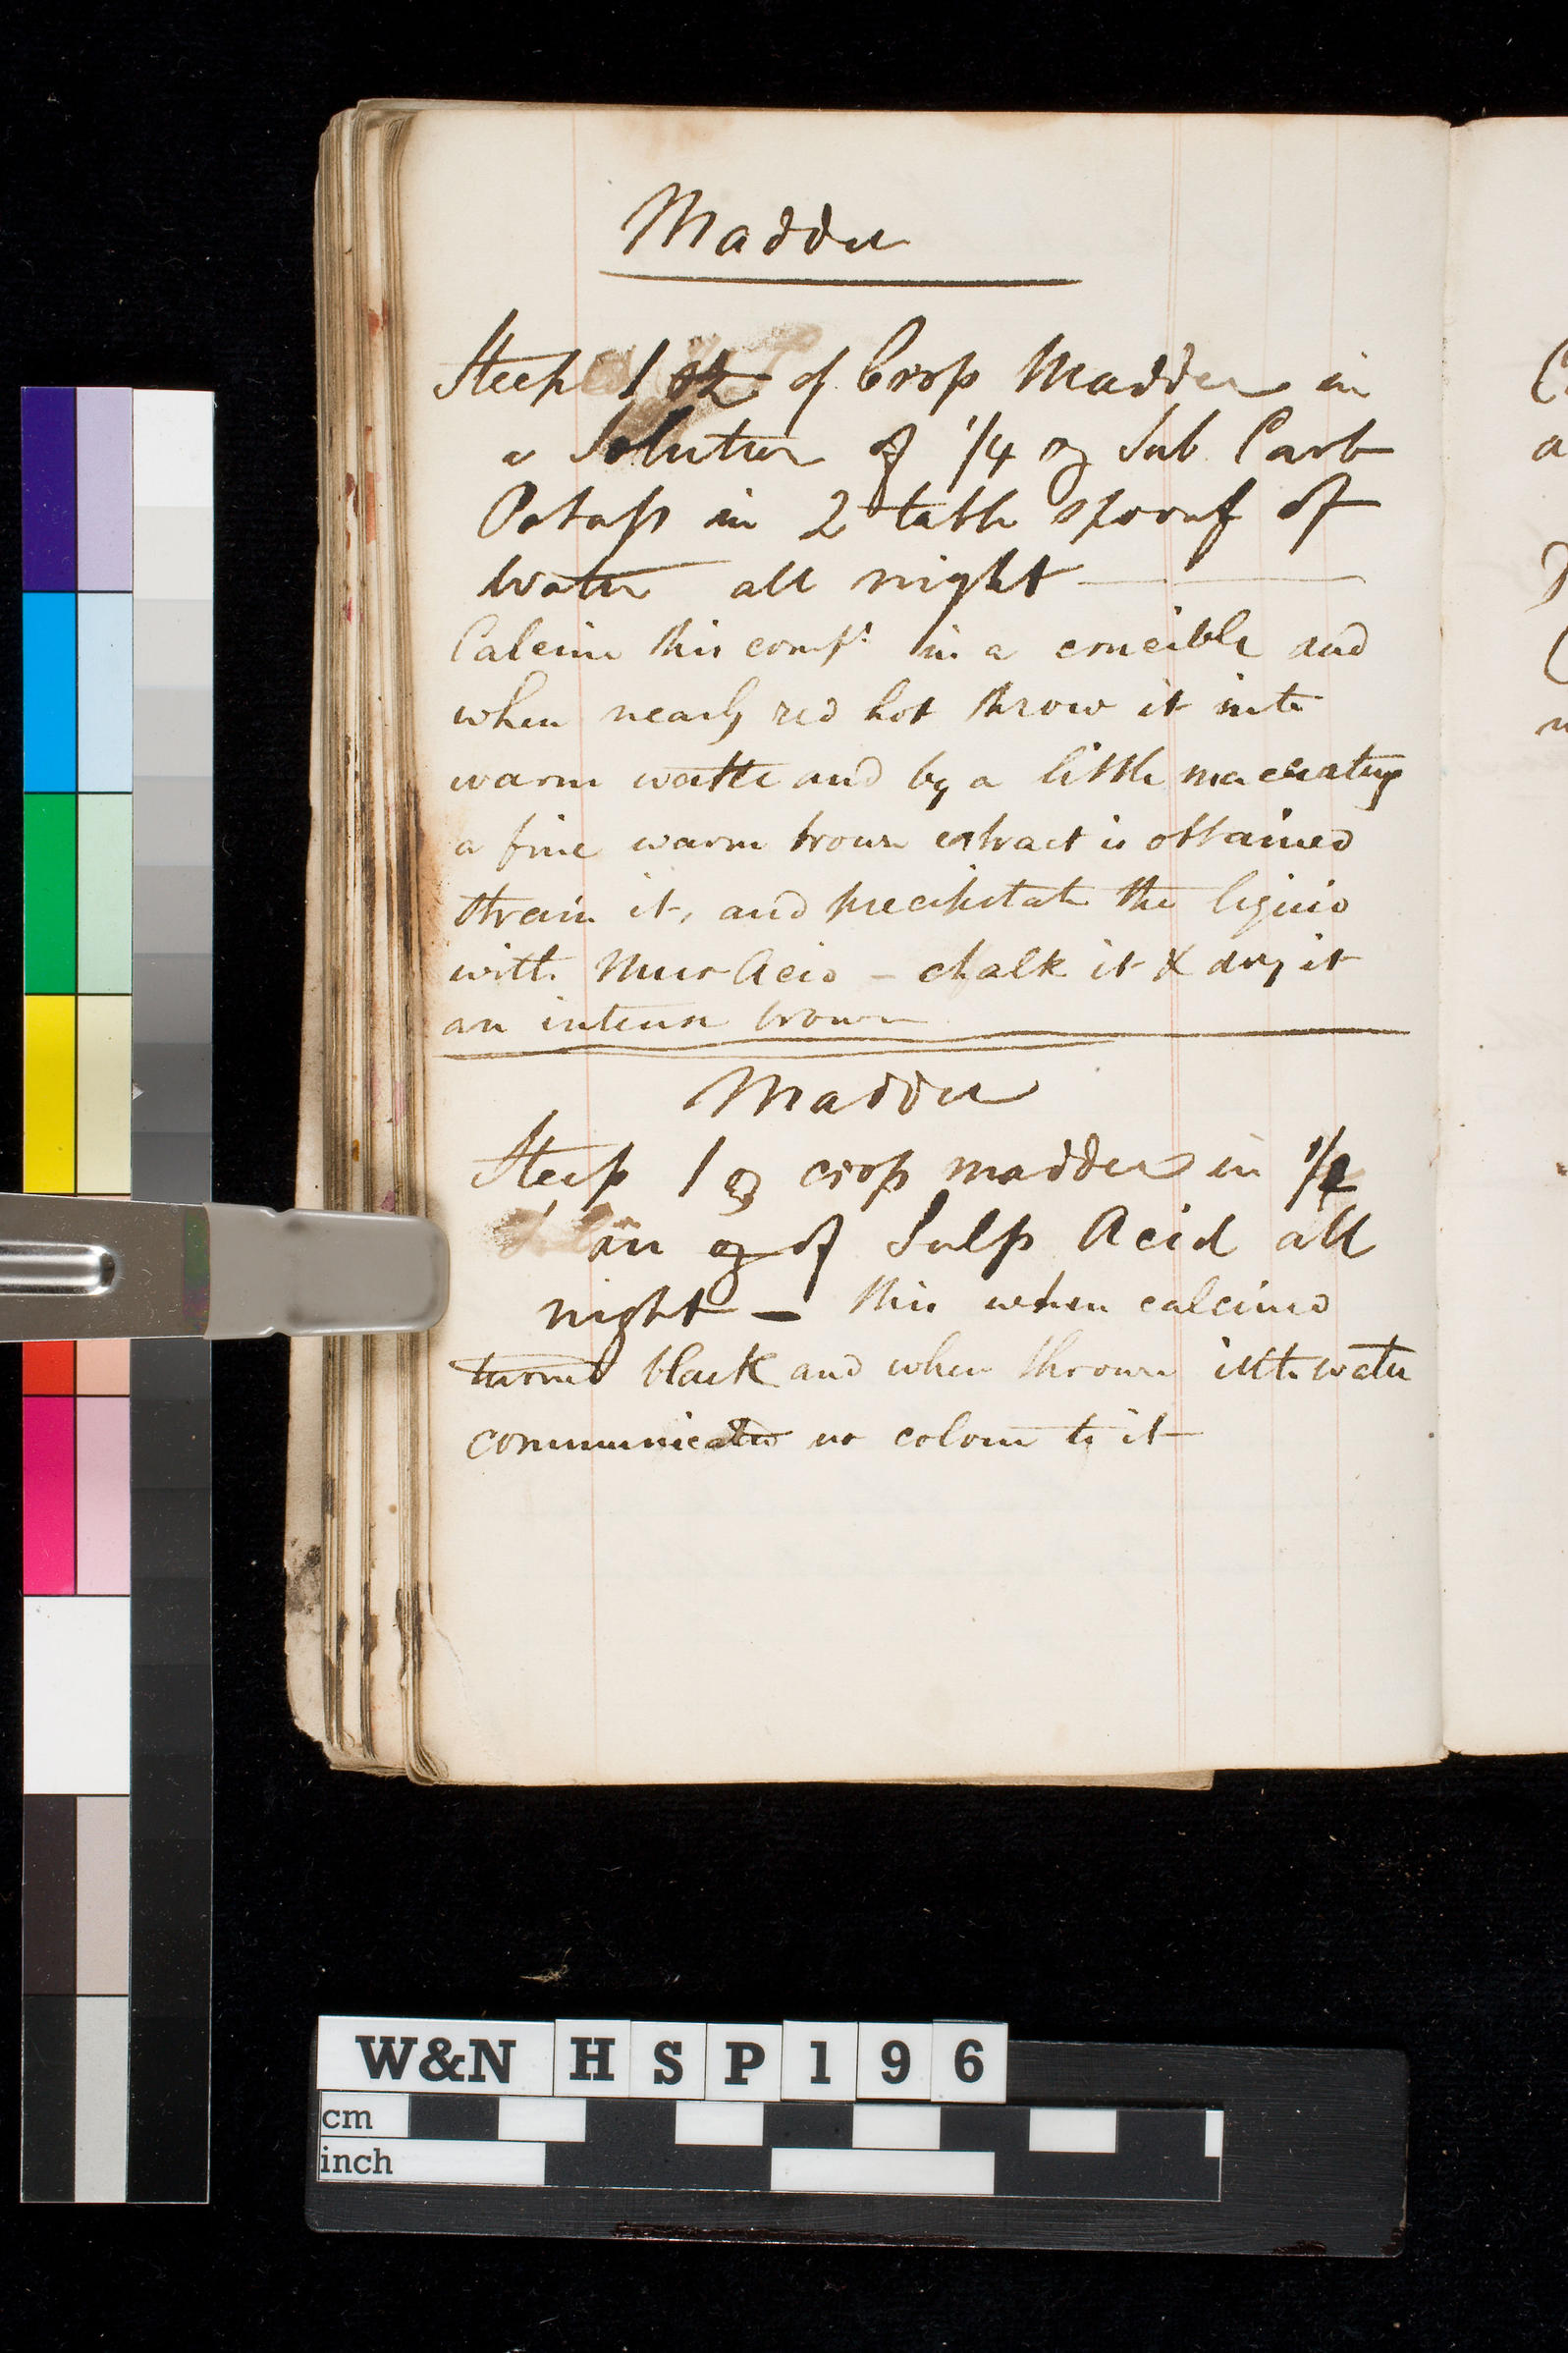 Madder
Steep 1 oz of Crop Madder in
a Solution of 1/4 oz Sub Carb
Potass in 2 table spoonf of
water all night
Calcine this comp.d in a crucible and
when nearly red hot throw it into
warm water and by a little macerating
a fine warm brown extract is obtained
strain it, and precipitate the liquid
with Mur Acid – chalk it & dry it
an intense brown
Madder
Steep 1 oz crop madder in 1/2
an oz of Sulp Acid all
night – this when calcined
turned black and when thrown into water
communicated no colour to it
W&N HSP196
cm
inch